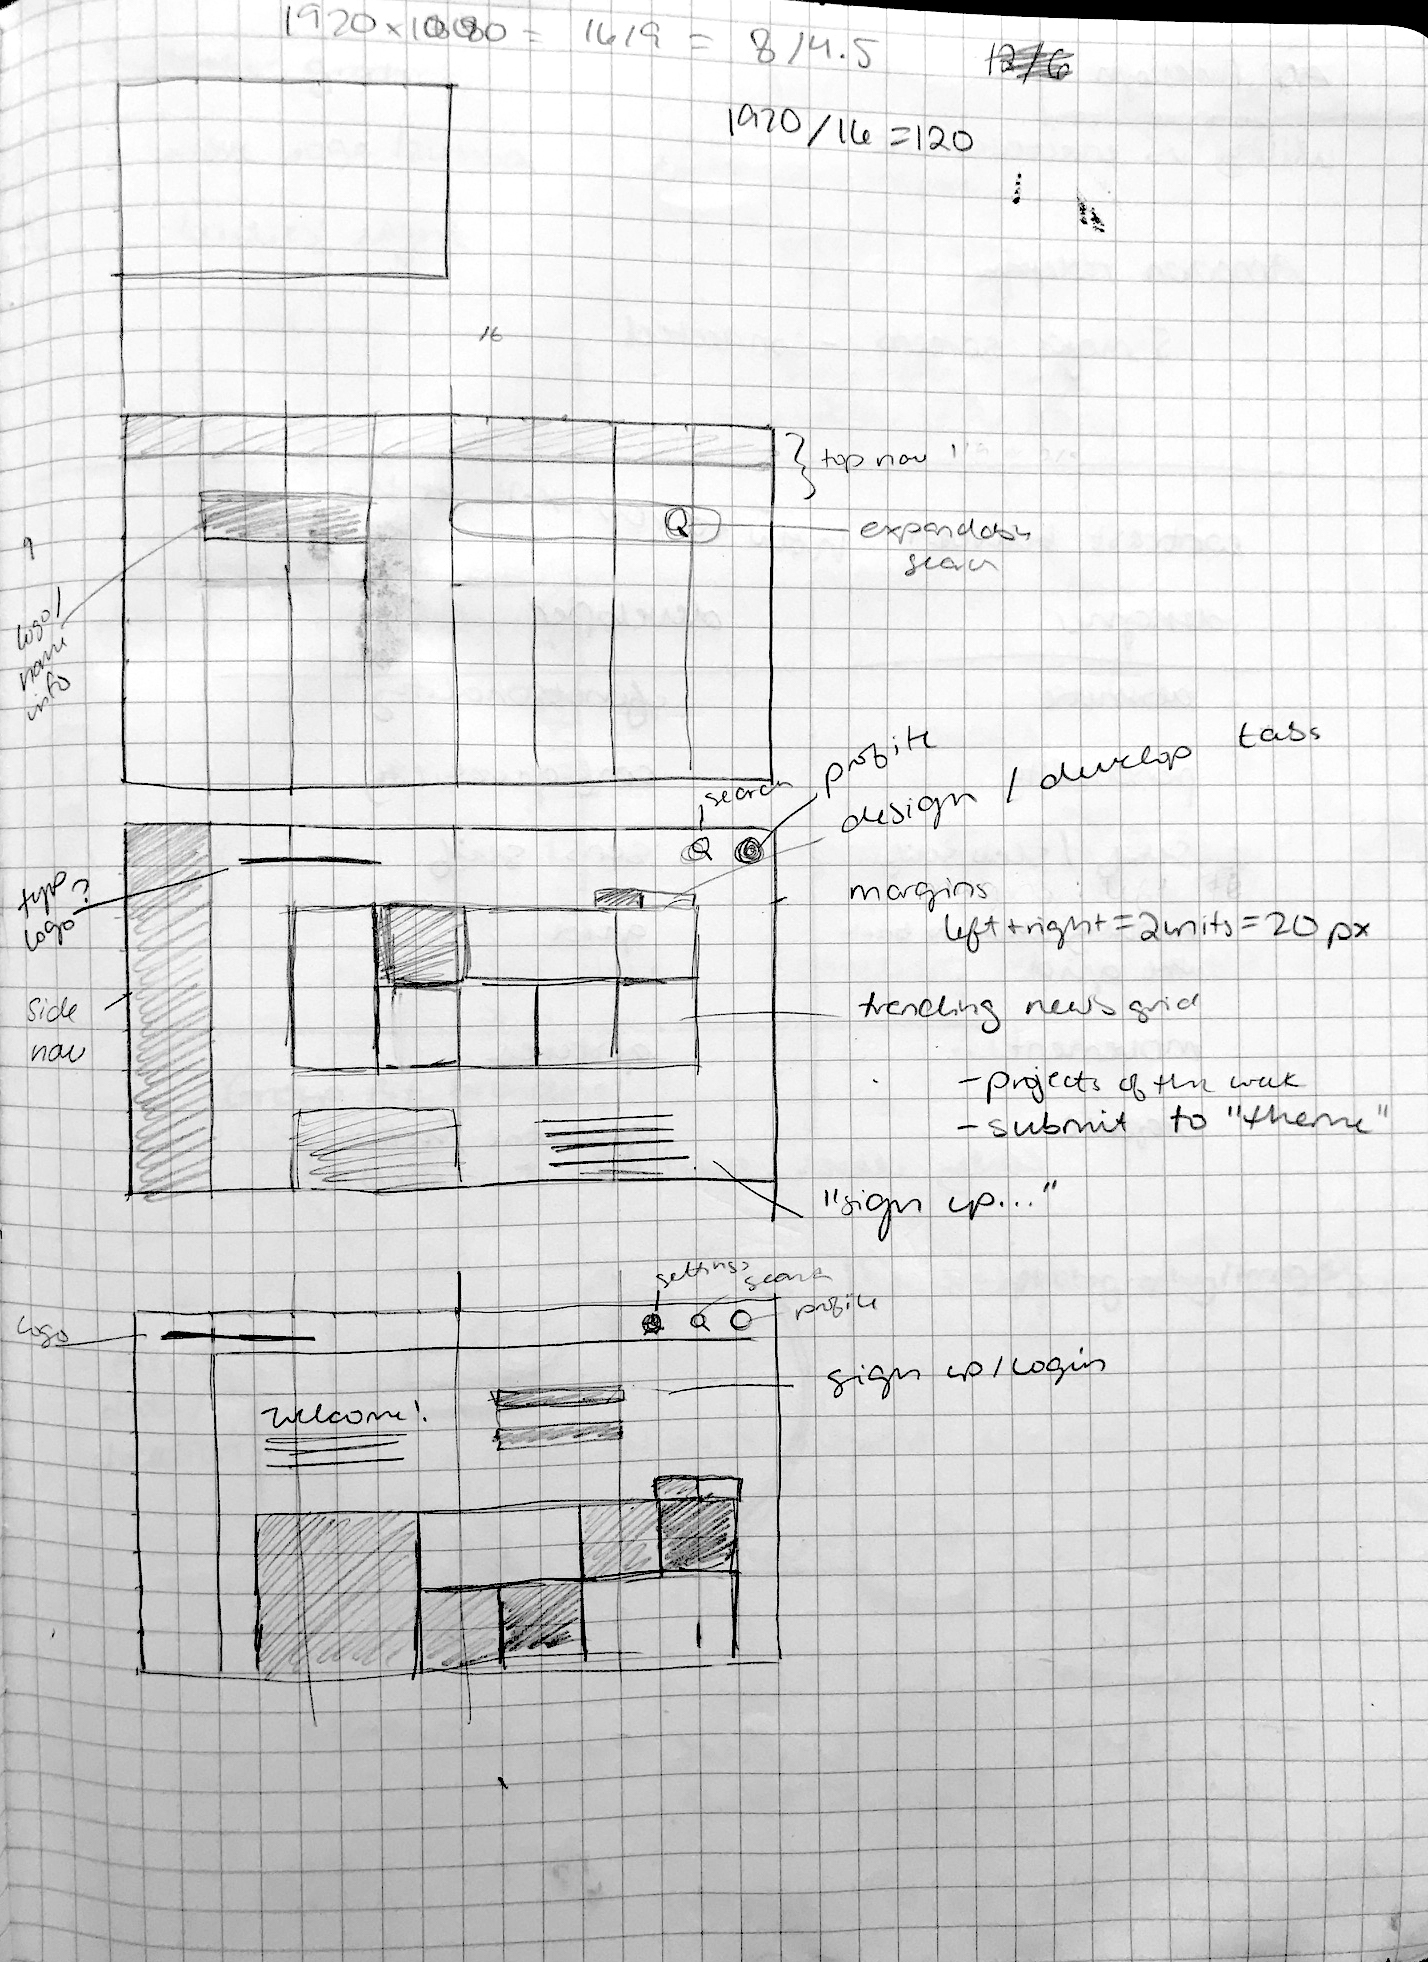 1920x1080 = 16/9 = 8/4.5
12/6
1920/16 = 120
16
top nav
9
expandable
search
logo/
name
info
search
profile
design / develop tabs
type
logo?
margins
left + right = 2 units = 20 px
side
nav
trending news grid
- projects of the week
- submit to "theme"
"sign up..."
settings
search
profile
logo
sign up/login
welcome!